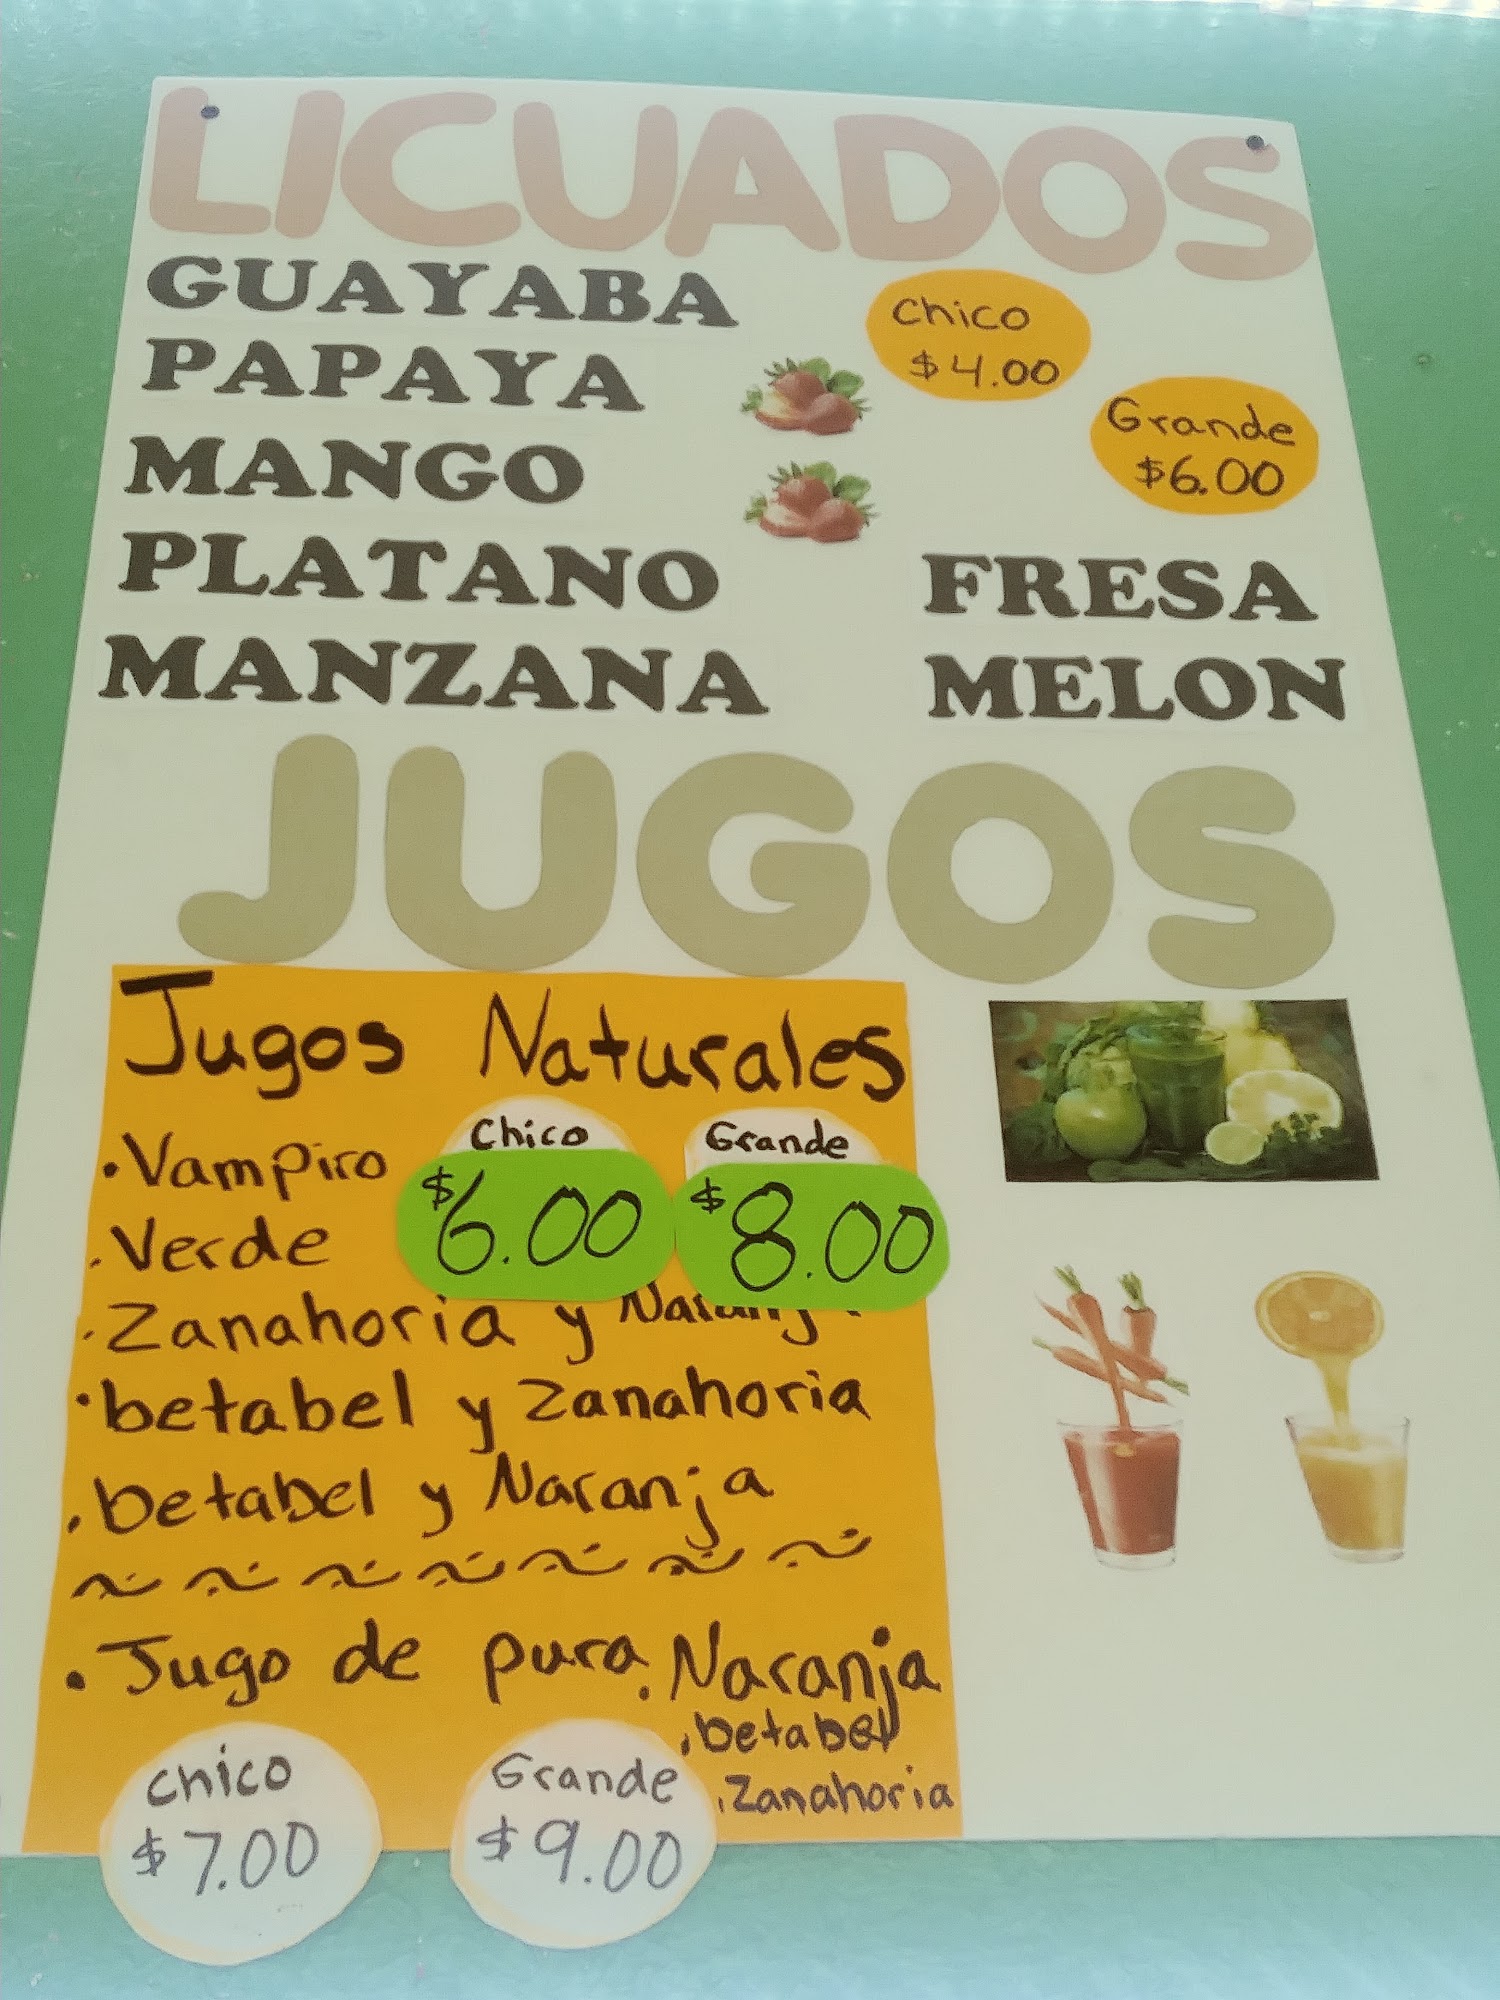 LICUADOS
GUAYABA
PAPAYA
MANGO
PLATANO
MANZANA
Chico
$4.00
Grande
$6.00
FRESA
MELON
JUGOS
Jugos Naturales
Chico
$6.00
Grande
$8.00
·Vampiro
·Verde
·Zanahoria y Naranja
·betabel y Zanahoria
·betabel y Naranja
·Jugo de pura ·Naranja
·betabel
·Zanahoria
Chico
$7.00
Grande
$9.00